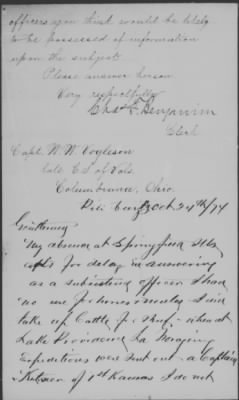 officers you think would be likely
to be possessed of information
upon the subject.
Please answer hereon
Very respectfully
Chas F. Benjamin
Clerk
Capt. W. W.
late C.S. of Vols.
Columbiana, Ohio.
Oct 24th/74
Gentlemen
My absence at Springfield Ills
for delay in answering
as a subsistence officer I had
no use for horses or mules I did
take up Cattle for Beef - when at
Lake Providence La foraging
expeditions were sent out - a Captain
of 1st Kansas I do not